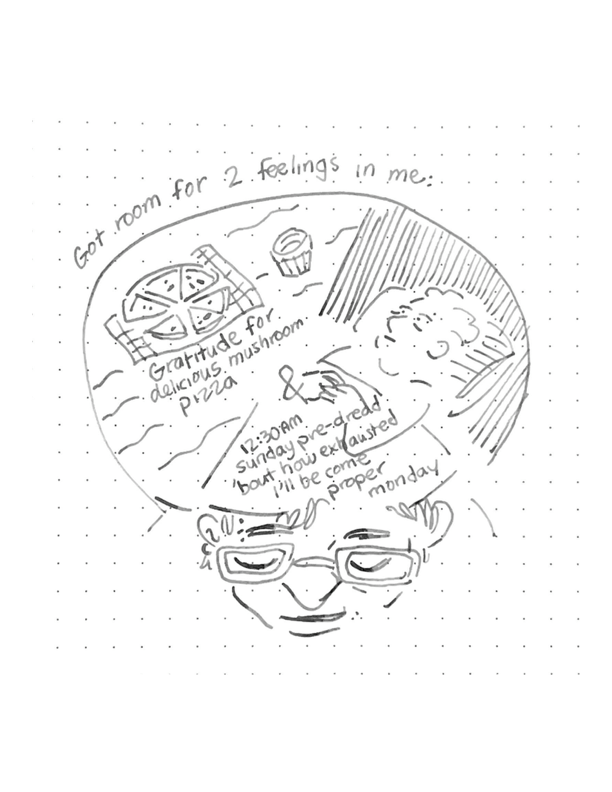 Got room for 2 feelings in me:
Gratitude for
delicious mushroom
pizza
&
12:30AM
sunday pre-dread
'bout how exhausted
i'll be come
proper
monday